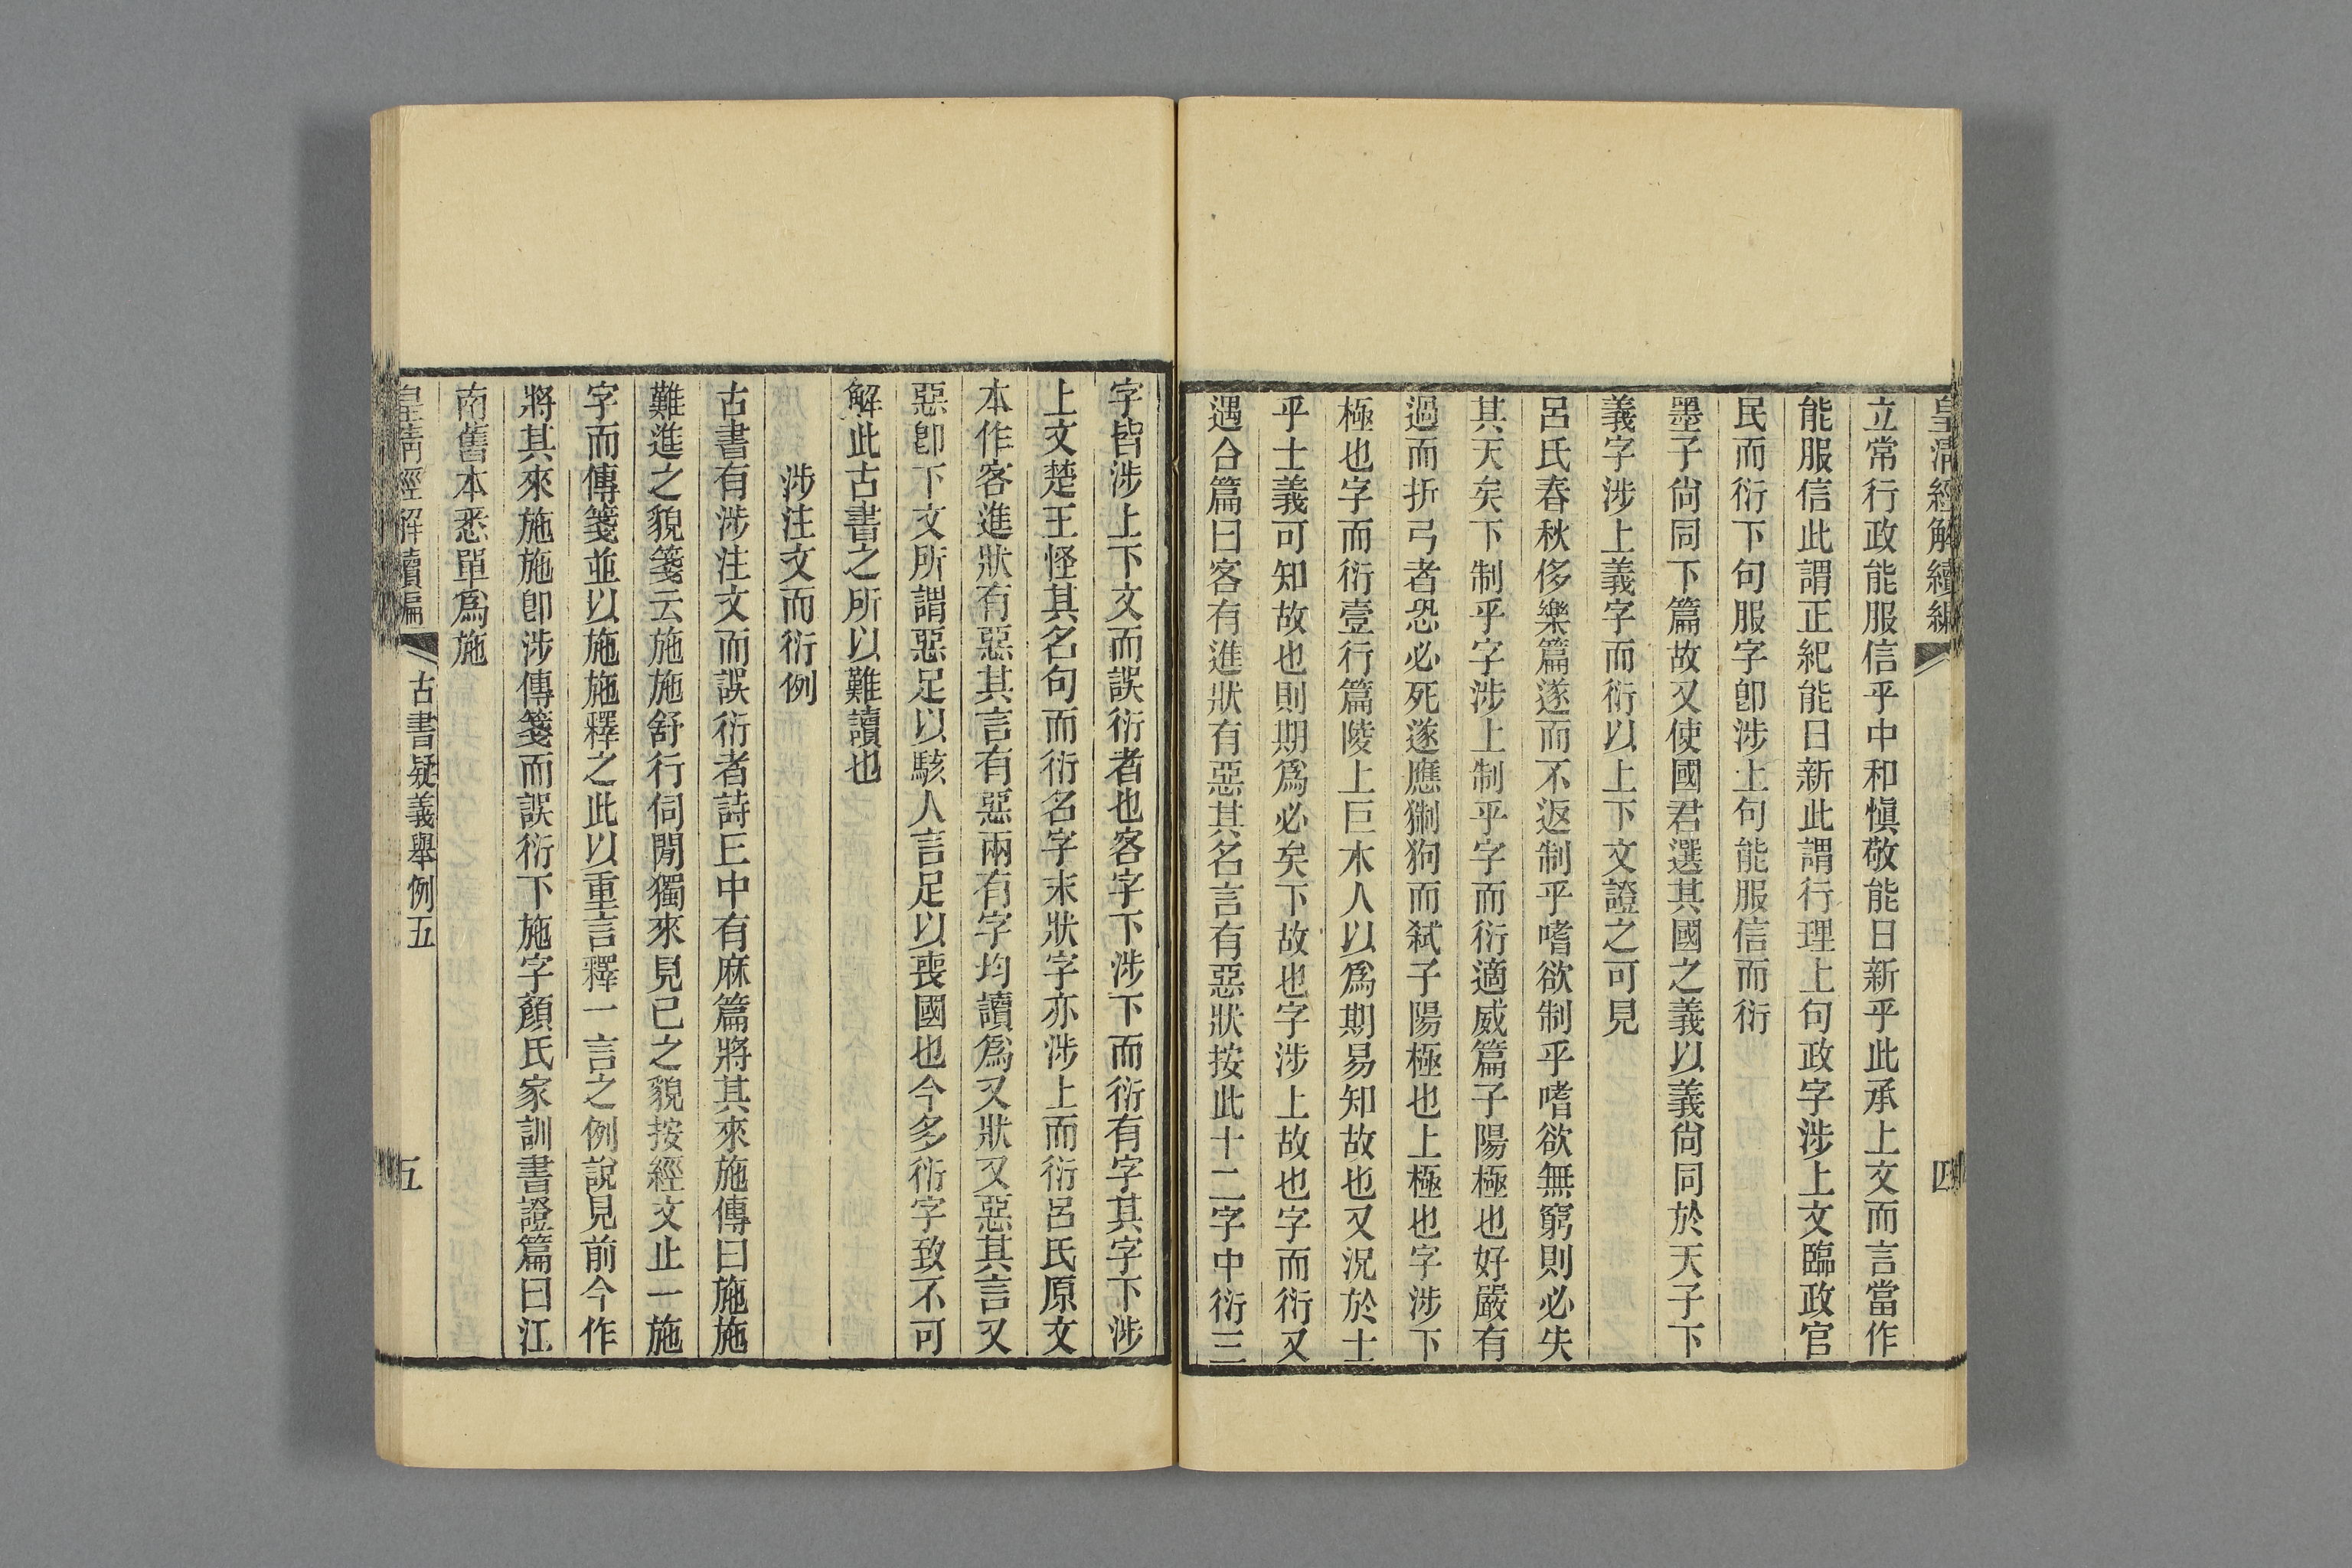 皇清經解續編
四
立常行政能服信乎中和慎敬能日新乎此承上文而言當作
能服信此謂正紀能日新此謂行理上句政字涉上文臨政官
民而衍下句服字卽涉上句能服信而衍
墨子尙同下篇故又使國君選其國之義以義尙同於天子下
義字涉上義字而衍以上下文證之可見
呂氏春秋侈樂篇遂而不返制乎嗜欲制乎嗜欲無窮則必失
其天矣下制乎字涉上制乎字而衍適威篇子陽極也好嚴有
過而折弓者恐必死遂應猘狗而弒子陽極也上極也字涉下
極也字而衍壹行篇陵上巨木人以爲期易知故也又況於士
乎士義可知故也則期爲必矣下故也字涉上故也字而衍又
遇合篇曰客有進狀有惡其名言有惡狀按此十二字中衍三
字皆涉上下文而誤衍者也客字下涉下而衍有字其字下涉
上文楚王怪其名句而衍名字末狀字亦涉上而衍呂氏原文
本作客進狀有惡其言有惡兩有字均讀爲又狀又惡其言又
惡卽下文所謂惡足以駭人言足以喪國也今多衍字致不可
解此古書之所以難讀也
涉注文而衍例
古書有涉注文而誤衍者詩王中有麻篇將其來施傳曰施施
難進之貌箋云施施舒行伺閒獨來見已之貌按經文止一施
字而傳箋並以施施釋之此以重言釋一言之例說見前今作
將其來施施卽涉傳箋而誤衍下施字顏氏家訓書證篇曰江
南舊本悉單爲施
皇清經解續編
古書疑義舉例五
五